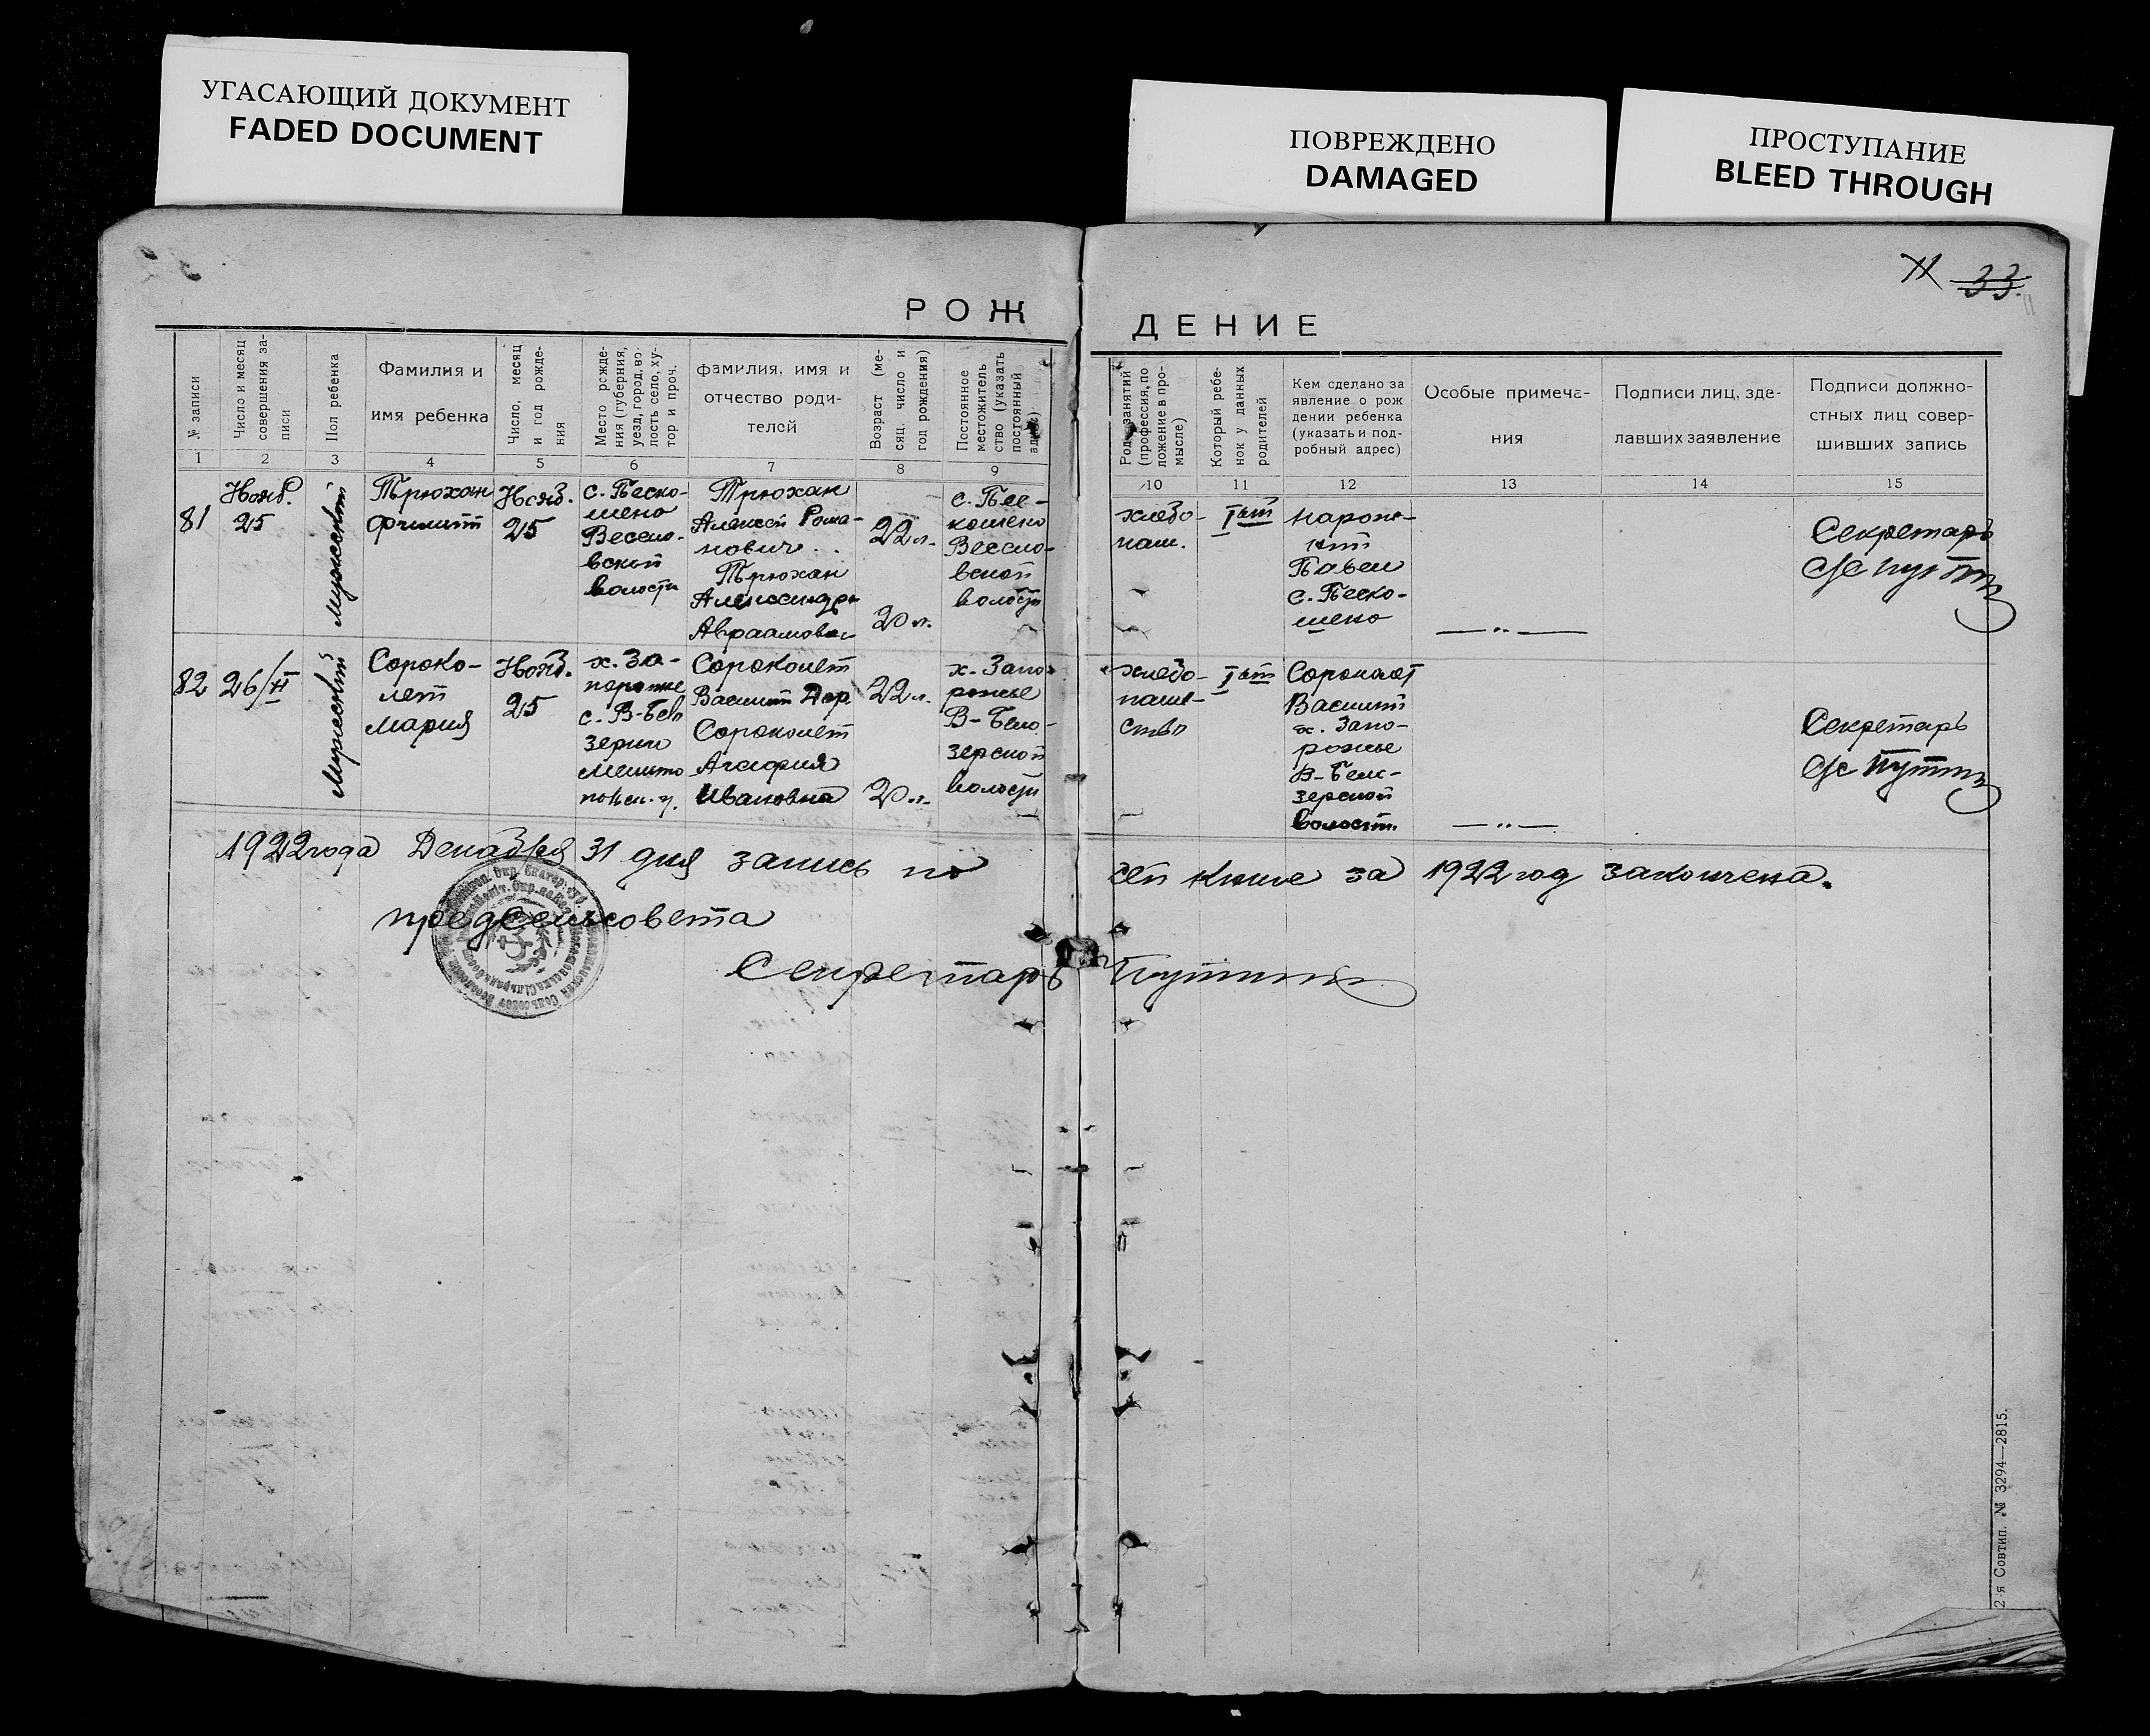 УГАСАЮЩИЙ ДОКУМЕНТ
FADED DOCUMENT
ПОВРЕЖДЕНО
DAMAGED
ПРОСТУПАНИЕ
BLEED THROUGH
33.
РОЖ
ДЕНИЕ
№ записи
Число и месяц
совершения за-
писи
Пол ребенка
Фамилия и
имя ребенка
Число, месяц
и год рожде-
ния
Место рожде-
ния (губерния,
уезд, город, во-
лость село, ху-
тор и проч.
фамилия, имя и
отчество роди-
телей
Возраст (ме-
сяц, число и
год рождения)
Постоянное
местожитель
ство (указать
постоянный
адрес)
Род занятий
(профессия, по
ложение в про-
мысле)
Который ребе-
нок у данных
родителей
Кем сделано за
явление о рож
дении ребенка
(указать и под-
робный адрес)
Особые примеча-
ния
Подписи лиц, зде-
лавших заявление
Подписи должно-
стных лиц совер-
шивших запись
1 2 3 4 5 6 7 8 9 10 11 12 13 14 15
81
Нояб.
25
Мужеский
Трюхан
Филипп
Нояб.
25
с. Беско-
шено
Весело-
вской
волости
Трюхан
Алексей Рома-
нович
Трюхан
Александра
Авраамовн
22 л.
20 л.
с. Бес-
кошено
Весело-
вской
волости
хлебо-
паш.
I ый
Павел
с. Беско-
шено
— „ —
Секретарь
82
26/XI
Мужеский
Сороко-
лет
Мария
Нояб.
25
х. За-
порожье
с. В-Бел
зерки
Мелито
польск. у.
Сороколет
Василий
Сороколет
Агафия
Ивановна
22 л.
20 л.
х. Запо-
рожье
В-Бело-
зерской
волости
хлебо-
паше-
ство
I ый
Сороколет
Василий
х. Запо-
рожье
В-Бело-
зерской
волости
— „ —
Секретарь
1922 года Декабря 31 дня запись по сей книге за 1922 год закончена.
предсельсовета
Секретарь
2-я Совтип. № 3294—2815.